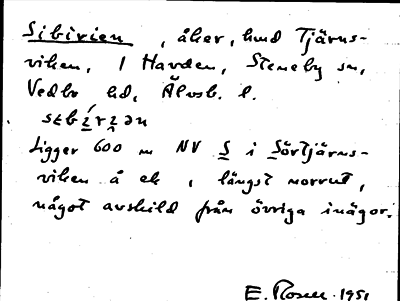 Sibirien, åker, hmd Tjärns-
viken, 1 Havden, Steneby sn,
Vedbo hd, Älvsb. l.
Ligger 600 m NV S i Sörtjärns-
viken å ek, längst norrut,
något avskild från övriga inägor.
E. Rosell 1951